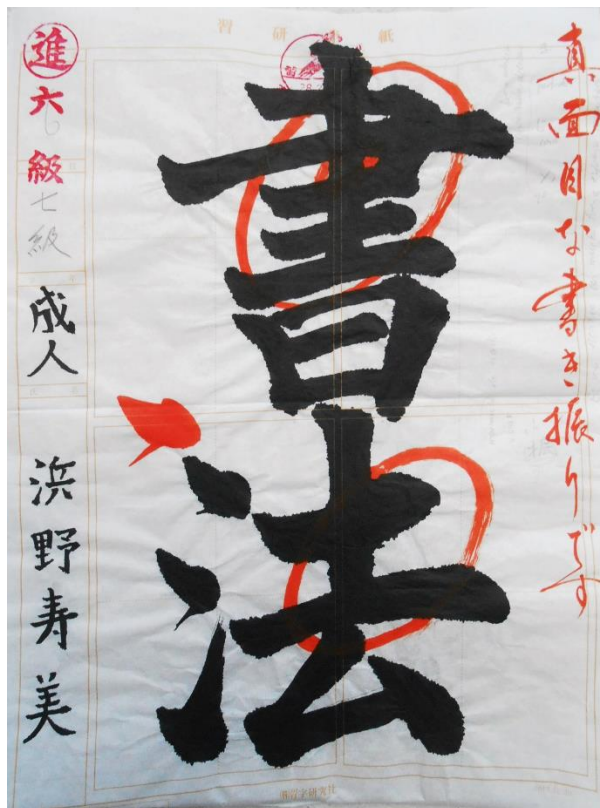 真面目な書き振りです
書法
進六級
七級
成人
浜野寿美